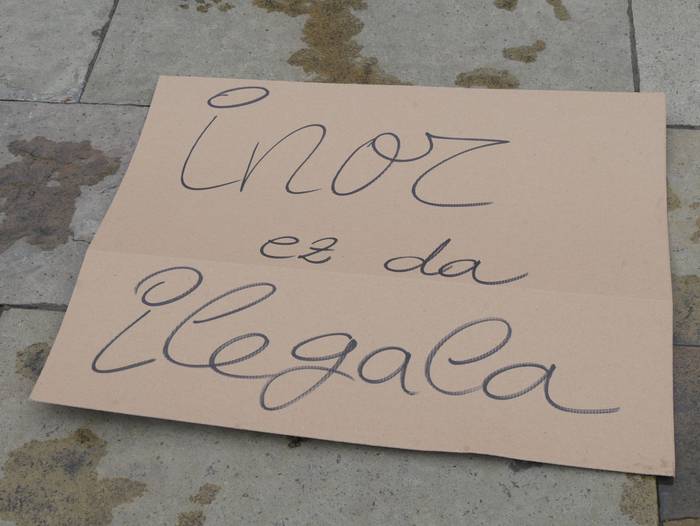 inor
ez da
ilegala